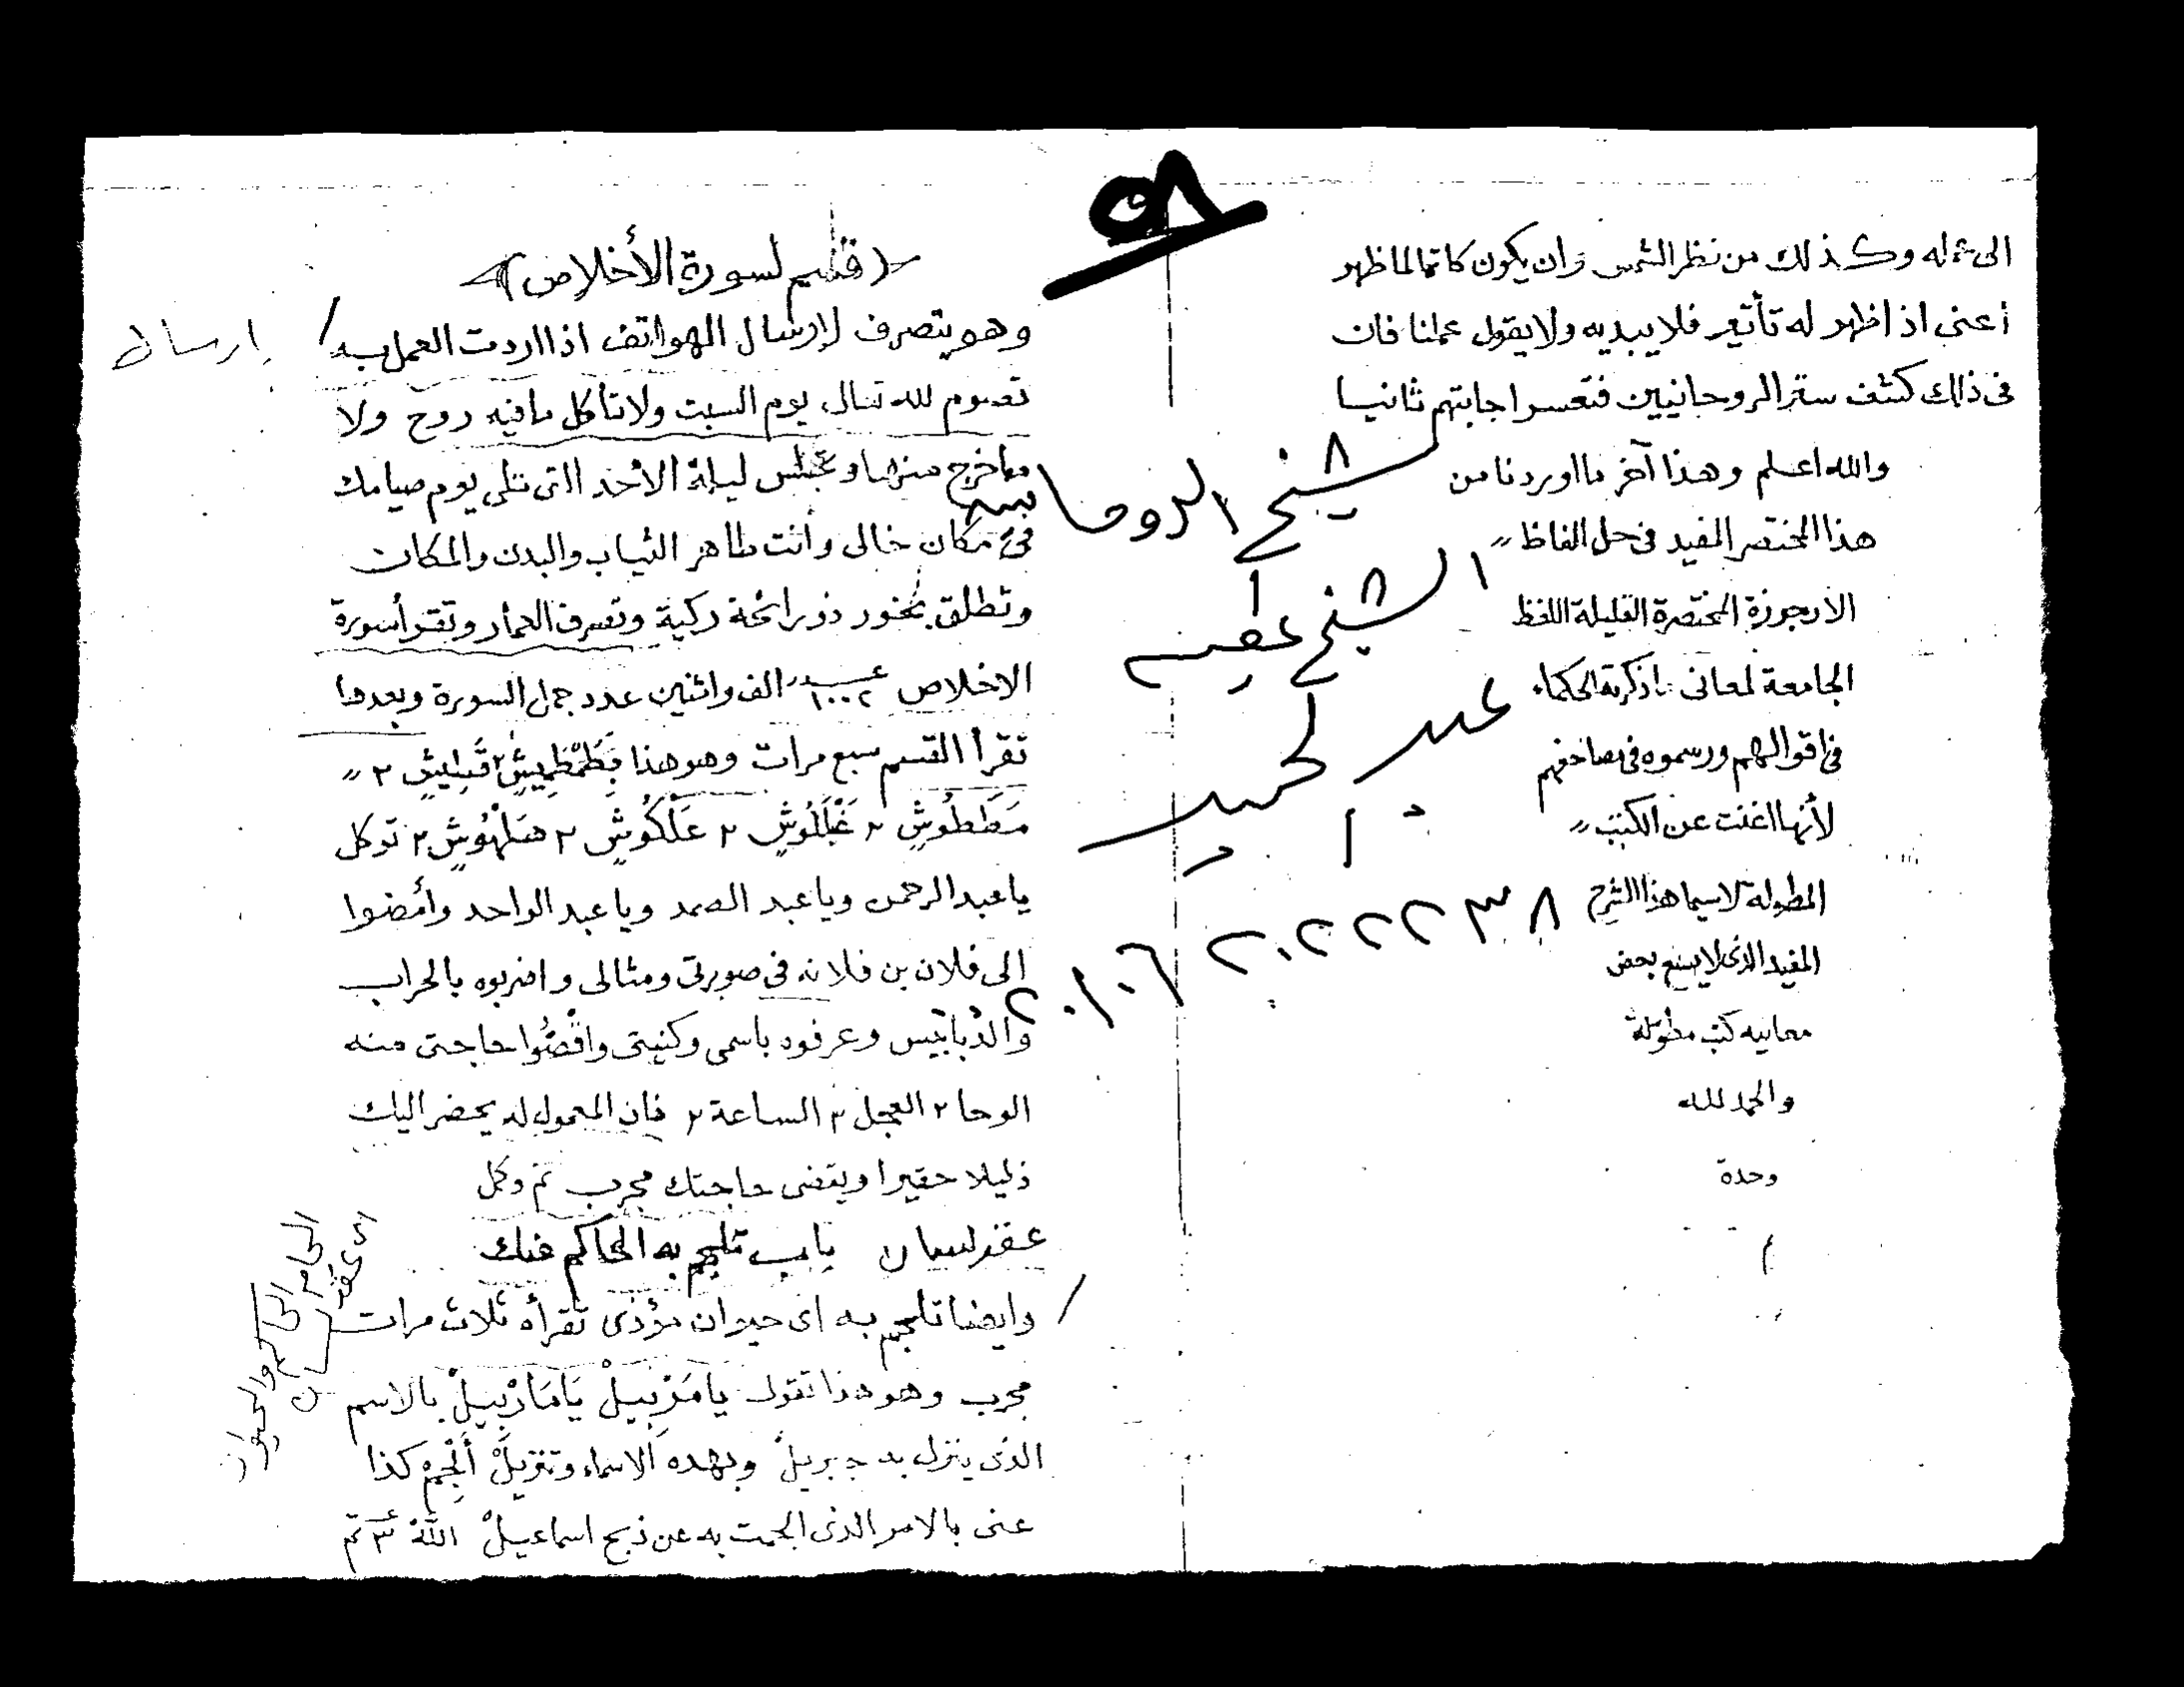 ٥٨
الى عمله وكذلك من نظر الشمس وان يكون كاتما لما ظهر
أعنى اذا ظهر له تأثير فلا يبديه ولا يقول عملنا فان
فى ذلك كشف ستر الروحانيين فتعسر اجابتهم ثانيا
والله اعلم وهذا آخر ما اوردنا من
هذا المختصر المفيد فى حل الفاظ
الارجوزة المختصرة القليلة اللفظ
الجامعة لمعانى ما ذكرته الحكماء
فى اقوالهم ورسموه فى مصاحفهم
لأنها اغنت عن الكتب
المطولة لاسيما هذا الشرح
المفيد الذى لا يسع بعض
معانيه كتب مطولة
والحمد لله
وحدة
م
شيخ الروحانيه
الشيخ
عبد
﴿قسم لسورة الأخلاص﴾
وهو يتصرف لإرسال الهواتف اذا اردت العمل به
تصوم لله تعالى يوم السبت ولا تأكل ما فيه روح ولا
ما خرج منها وتجلس ليلة الأحد التى تلى يوم صيامك
فى مكان خالى وأنت طاهر الثياب والبدن والمكان
وتطلق بخور ذو رائحة زكية وتصرف العمار وتقرأ سورة
الاخلاص عدد ١٠٠٢ الف واثنين عدد جمل السورة وبعدها
تقرأ القسم سبع مرات وهو هذا ٢ ٢
مَطَطُوشٍ ٢ ٢ عَلْكُوشٍ ٢ ٢ توكل
يا عبد الرحمن ويا عبد الصمد ويا عبد الواحد وأمضوا
الى فلان بن فلانه فى صورتى ومثالى واضربوه بالحراب
والدبابيس وعرفوه باسمى وكنيتى واقضوا حاجتى منه
الوحا ٢ العجل ٢ الساعة ٢ فان المعمول له يحضر اليك
ذليلا حقيرا ويقضى حاجتك مجرب تم وكمل
عقد لسان باب تلجم به الحاكم عنك
وايضا تلجم به اى حيوان مؤذى تقرأه ثلاث مرات
مجرب وهو هذا تقول يا مَزْبِيلْ يَا مَازْبِيلْ بالاسم
الذى ينزل به جبريل وبهذه الاسماء وتنزيل أَلْجِمْ كذا
عنى بالامر الذى الجمت به عن ذبح اسماعيل اللَّهُ ٣ تم
إرسال
الجام الحاكم والحيوان
اى عقد لسان